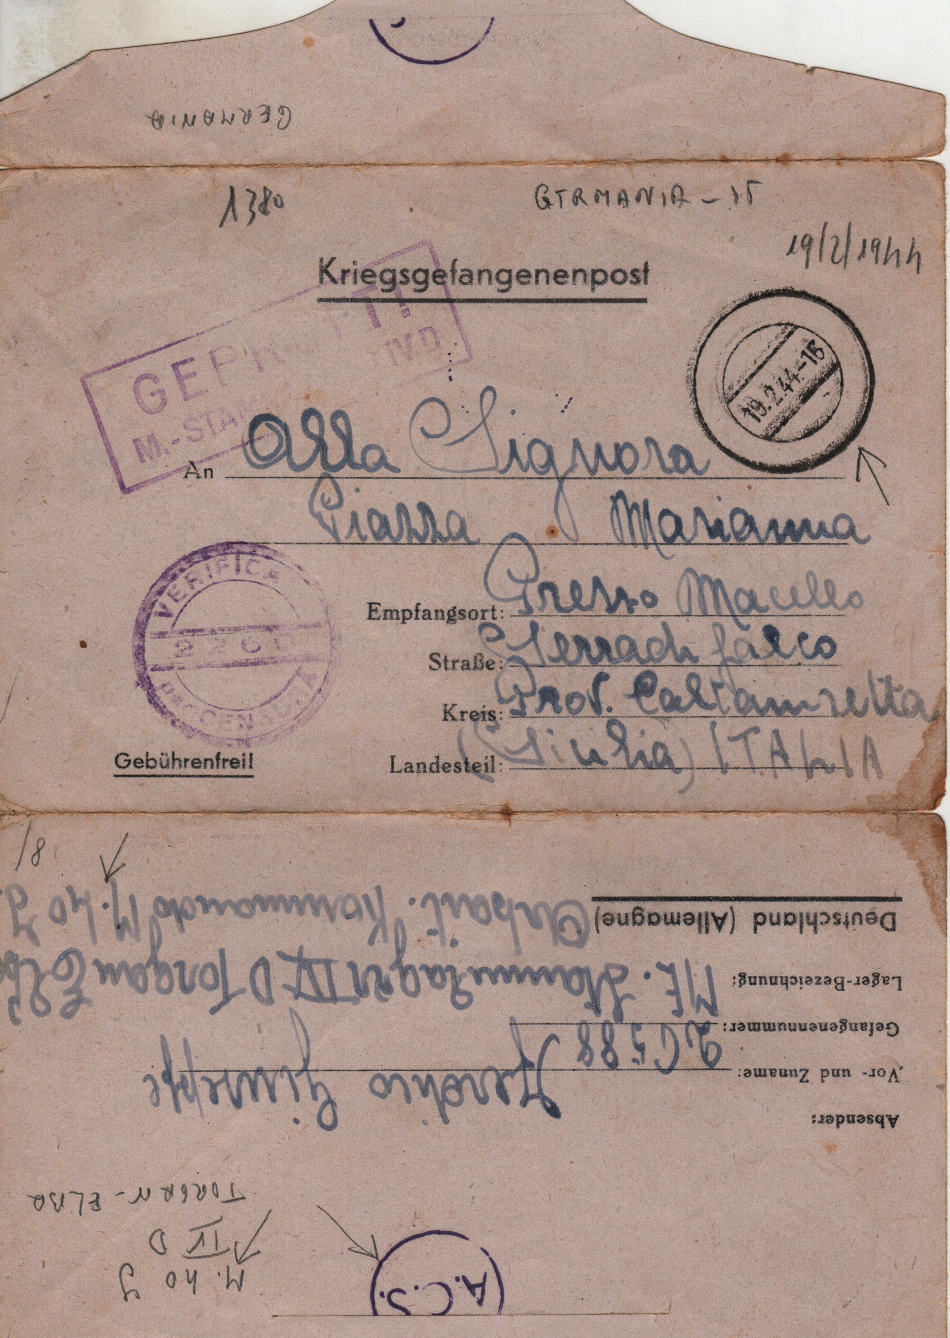 GERMANIA
1380
GERMANIA - 15
19/2/1944
Kriegsgefangenenpost
GEPRÜFT!
M.-STAMMLAGER IV D
19.2.44-16
An Alla Signora
Piazza Marianna
Empfangsort: Presso Macello
Straße: Serradifalco
Kreis: Prov. Caltanisetta
Landesteil: (Sicilia) ITALIA
VERIFICATO
PER CENSURA
Gebührenfrei!
18
Absender:
Vor- und Zuname: Giuseppe
Gefangenennummer:
Lager-Bezeichnung: M/E. Stammlager IV D Torgau Elbe
Arbeit. Kommando M. 40 J
Deutschland (Allemagne)
TORGAU - ELBA
IV D
M. 40 J
A.C.S.